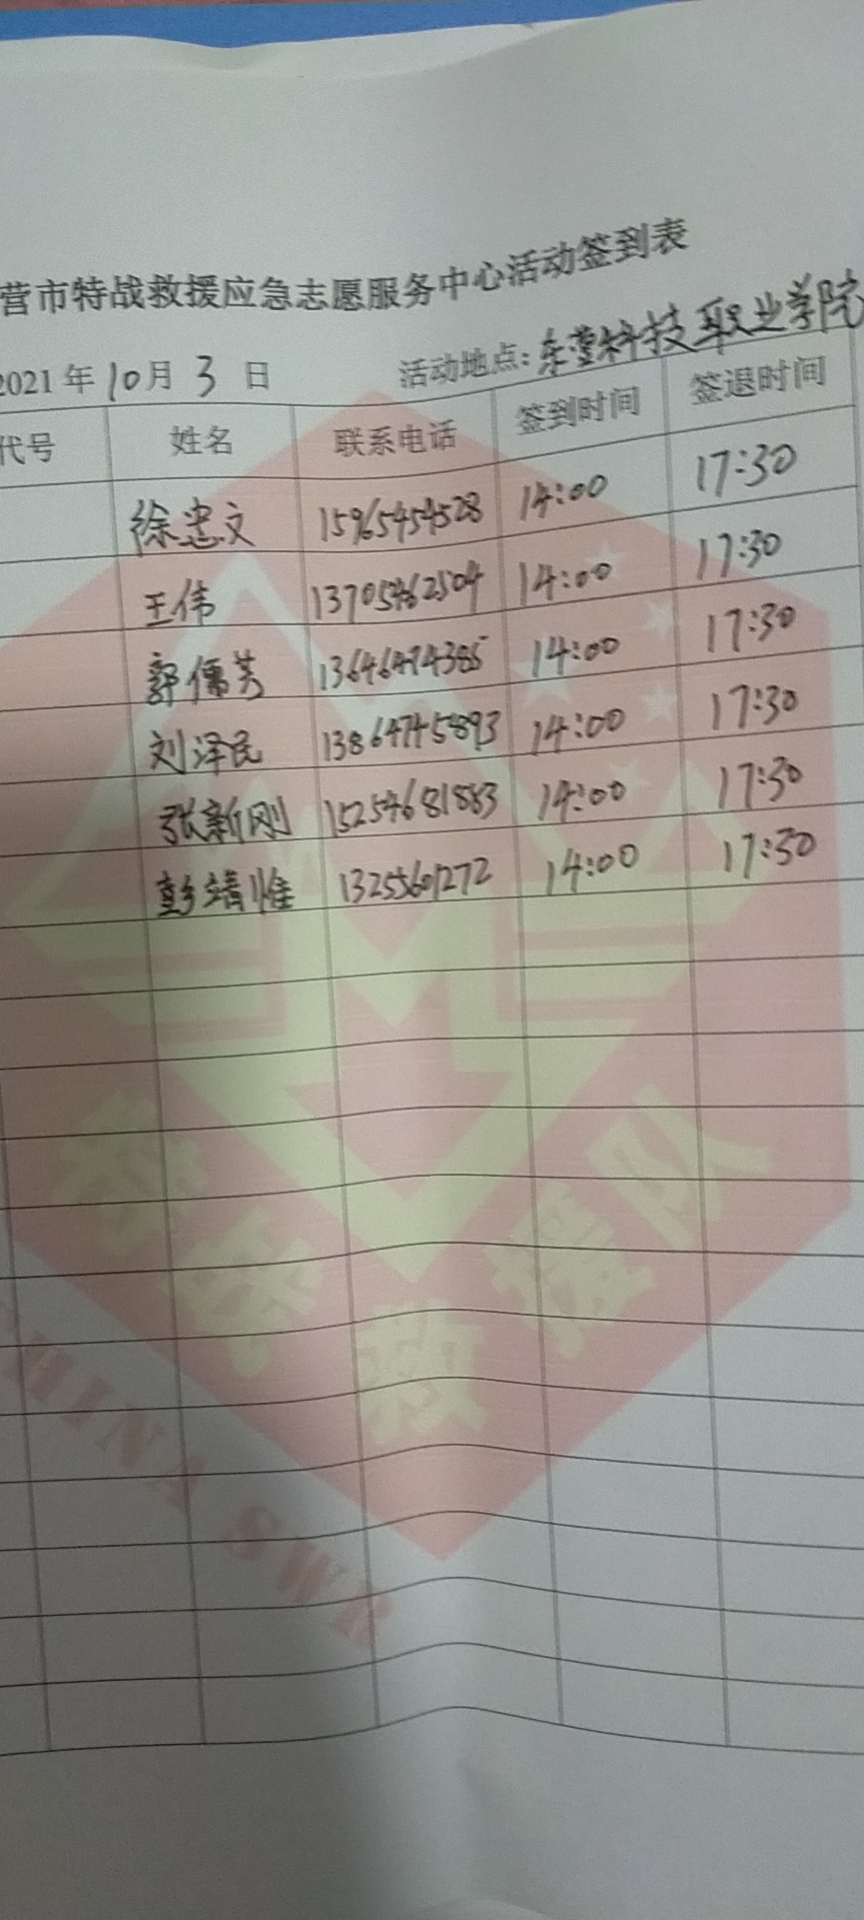 营市特战救援应急志愿服务中心活动签到表
2021 年 10 月 3 日 活动地点：东营科技职业学院
代号 姓名 联系电话 签到时间 签退时间
徐忠文 15965454528 14:00 17:30
王伟 13705462504 14:00 17:30
郭儒芳 13646474385 14:00 17:30
刘泽民 13864745893 14:00 17:30
张新刚 15254681883 14:00 17:30
彭靖惟 13255601272 14:00 17:30
特战救援队
CHINA SWR